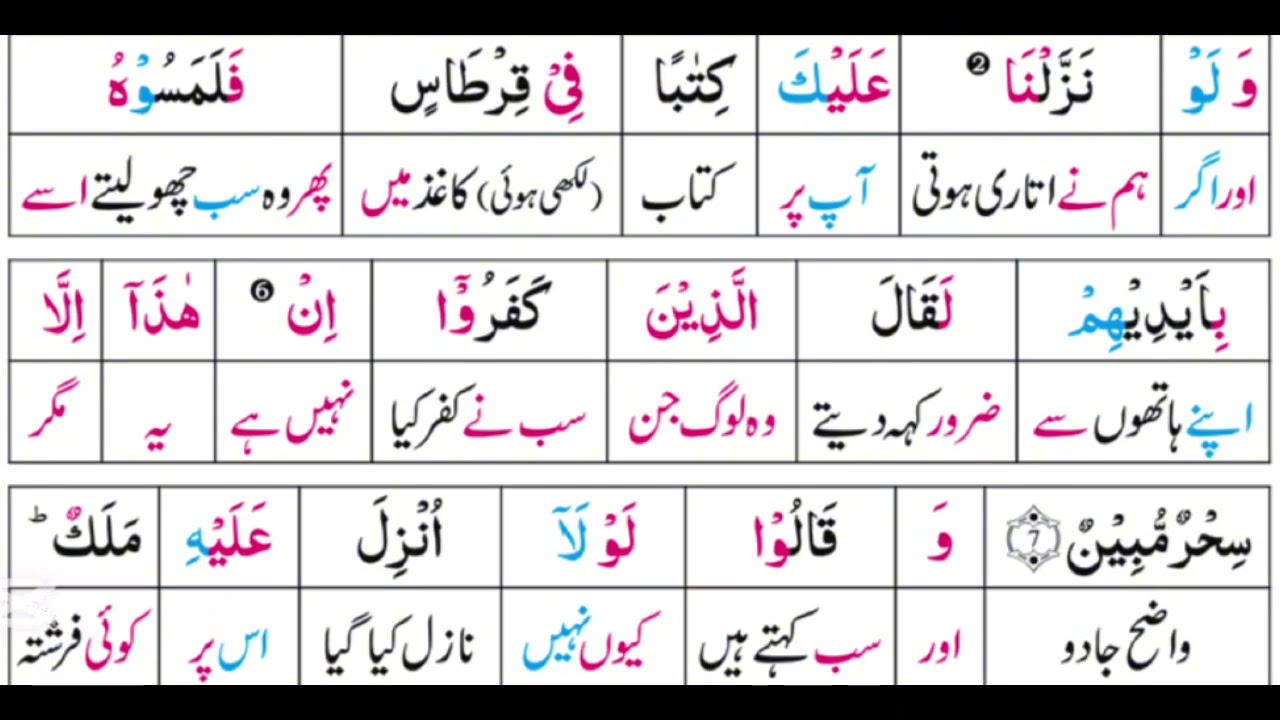 وَ لَوْ نَزَّلْنَا ❷ عَلَيْكَ كِتٰبًا فِيْ قِرْطَاسٍ فَلَمَسُوْهُ
اور اگر ہم نے اتاری ہوتی آپ پر کتاب (لکھی ہوئی) کاغذ میں پھر وہ سب چھو لیتے اسے
بِاَيْدِيْهِمْ لَقَالَ الَّذِيْنَ كَفَرُوْۤا اِنْ ❻ هٰذَاۤ اِلَّا
اپنے ہاتھوں سے ضرور کہہ دیتے وہ لوگ جن سب نے کفر کیا نہیں ہے یہ مگر
سِحْرٌ مُّبِيْنٌ 7 وَ قَالُوْا لَوْ لَاۤ اُنْزِلَ عَلَيْهِ مَلَكٌ ؕ
واضح جادو اور سب کہتے ہیں کیوں نہیں نازل کیا گیا اس پر کوئی فرشتہ